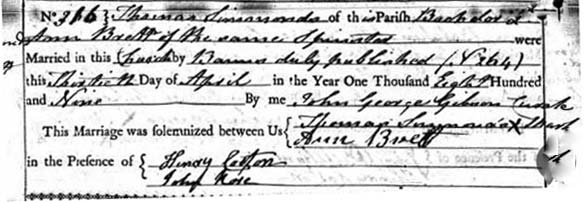 No. 266 } Thomas Simmonds of this Parish Bachelor &
Ann Brett of the same Spinster were
Married in this Church by Banns duly published (No 264)
this Thirtieth Day of April in the Year One Thousand Eight Hundred
and Nine By me John George Gibson Curate
This Marriage was solemnized between Us { Thomas X Mark
Ann Brett
in the Presence of { Henry
John Rose